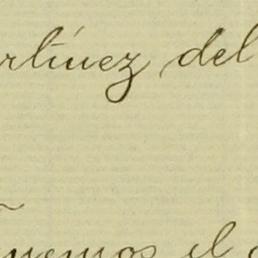 rtínez del
nemos el